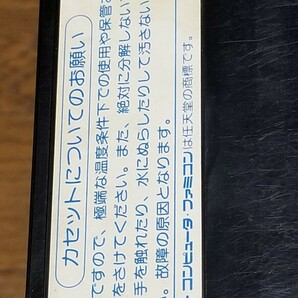 カセットについてのお願い
ですので、極端な温度条件下での使用や保管
をさけてください。また、絶対に分解しない
手を触れたり、水にぬらしたりして汚さない
。故障の原因となります。
コンピュータ・ファミコンは任天堂の商標です。